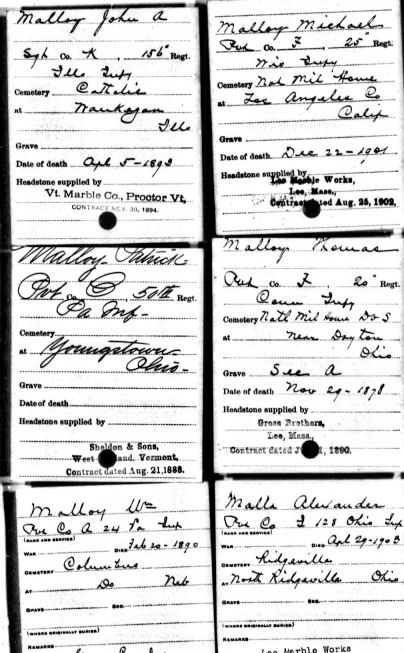 Malloy John A
Sgt Co. K, 156" Regt.
Ills Infy
Cemetery Catholic
at Waukegan
Ills
Grave
Date of death Apl 5-1892
Headstone supplied by
Vt. Marble Co., Proctor Vt,
CONTRACT NOV. 30, 1894.
Malloy Michael
Pvt Co. F, 25" Regt.
Wis Infy
Cemetery Nat Mil Home
at Los Angeles Co
Calif
Grave
Date of death Dec 22-1901
Headstone supplied by
Lee Marble Works,
Lee, Mass.,
Contract dated Aug. 25, 1902.
Malloy Patrick
Pvt Co. 50th Regt.
Pa Inf
Cemetery
at Youngstown
Ohio
Grave
Date of death
Headstone supplied by
Sheldon & Sons,
West land, Vermont,
Contract dated Aug. 21, 1888.
Malloy Thomas
Pvt Co. F, 20" Regt.
Conn Infy
Cemetery Natl Mil Home D V S
at near Dayton
Ohio
Grave Sec A
Date of death Nov 29-1878
Headstone supplied by
Gross Brothers,
Lee, Mass.,
Contract dated 1890.
Malloy Wm
Pvt Co A 24 Pa Inf
(RANK AND SERVICE)
WAR DIED Feb 20-1890
CEMETERY Columbus
AT Do Neb
GRAVE SEC.
(WHERE ORIGINALLY BURIED)
REMARKS
Malla Alexander
Pvt Co I 128 Ohio Inf
(RANK AND SERVICE)
WAR DIED Apl 29-1903
CEMETERY Ridgeville
North Ridgeville Ohio
GRAVE SEC.
(WHERE ORIGINALLY BURIED)
REMARKS
Lee Marble Works